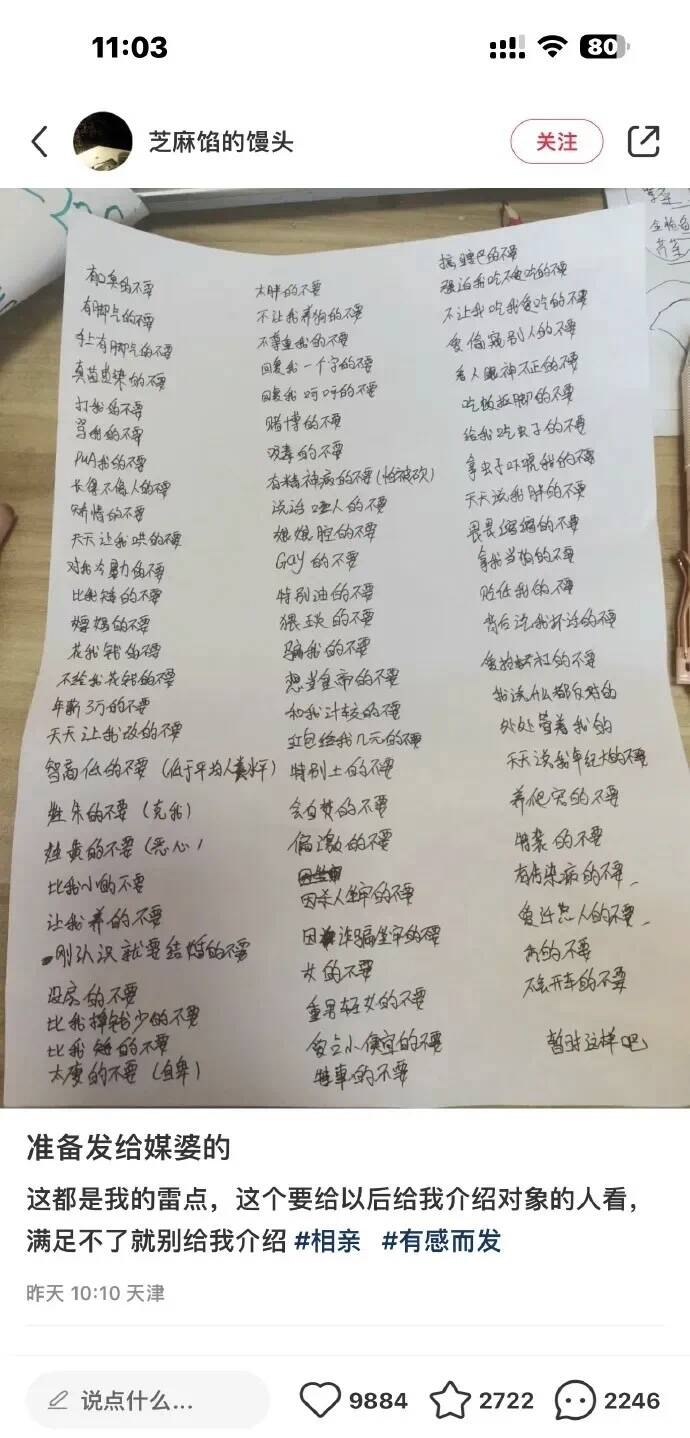 11:03
80
芝麻馅的馒头
关注
有口臭的不要
有脚气的不要
手上有脚气的不要
真菌感染的不要
打我的不要
骂我的不要
PUA我的不要
长得不像人的不要
矫情的不要
天天让我哄的不要
对我冷暴力的不要
比我矮的不要
妈妈的不要
花我钱的不要
不给我花钱的不要
年薪3万的不要
天天让我改的不要
智商低的不要(低于平均人类水平)
姓朱的不要(克我)
姓黄的不要(恶心)
比我小的不要
让我养的不要
刚认识就要结婚的不要
没房的不要
比我挣钱少的不要
比我矮的不要
太瘦的不要(自卑)
太胖的不要
不让我养狗的不要
不尊重我的不要
回复我一个字的不要
回复我呵呵的不要
赌博的不要
吸毒的不要
有精神病的不要(怕被砍)
说话噎人的不要
娘娘腔的不要
Gay的不要
特别油的不要
猥琐的不要
骗我的不要
想当皇帝的不要
和我计较的不要
红包给我几元的不要
特别土的不要
会自焚的不要
偏激的不要
因杀人坐牢的不要
因诈骗坐牢的不要
女的不要
重男轻女的不要
爱占小便宜的不要
特卑的不要
搞嘴巴的不要
强迫我吃不爱吃的不要
不让我吃我爱吃的不要
爱偷窥别人的不要
看人眼神不正的不要
吃饭抠脚的不要
给我吃虫子的不要
拿虫子吓唬我的不要
天天说我胖的不要
畏畏缩缩的不要
拿我当狗的不要
贬低我的不要
背后说我坏话的不要
我说什么都反对的
处处管着我的
天天说我年纪大的不要
养爬宠的不要
特装的不要
有传染病的不要
爱讹人的不要
秃的不要
不会开车的不要
暂时这样吧
准备发给媒婆的
这都是我的雷点，这个要给以后给我介绍对象的人看，
满足不了就别给我介绍 #相亲 #有感而发
昨天 10:10 天津
说点什么...
9884
2722
2246